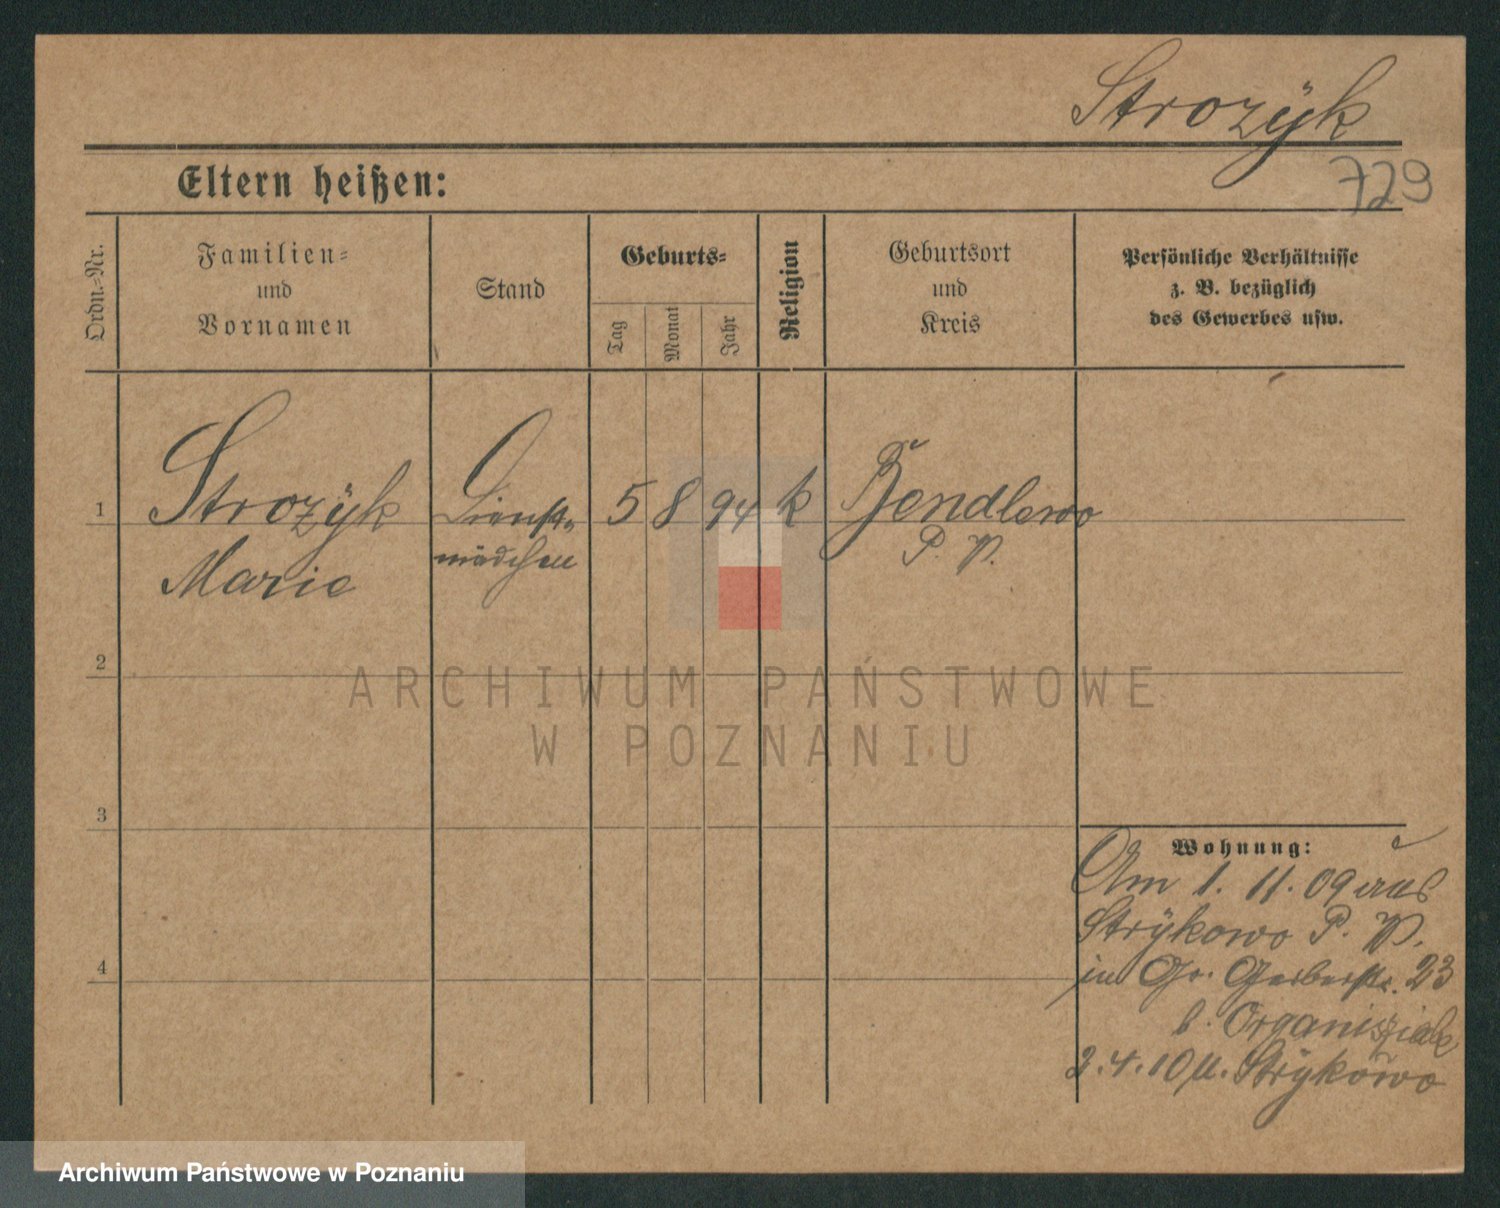 Strozÿk
729
Eltern heißen:
Ordn.-Nr.
Familien- und Vornamen
Stand
Geburts-
Tag
Monat
Jahr
Religion
Geburtsort und Kreis
Persönliche Verhältnisse
z. B. bezüglich
des Gewerbes usw.
1 Strozÿk Dienst- 5 8 94 k Bendlewo
Marie mädchen P. W.
2
3
4
Wohnung:
Am 1. 11. 09 aus
Strÿkowo P. W.
in Gr. Gerberstr. 23
b. Organisziak
2.4.10 n. Strÿkowo
ARCHIWUM PAŃSTWOWE
W POZNANIU
Archiwum Państwowe w Poznaniu